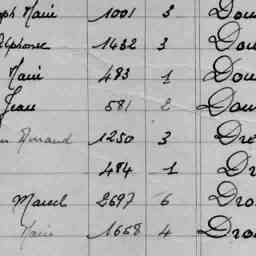 ph Marie 1001 3 Dou
Alphonse 1432 3 Dou
Marie 493 1 Dou
Jean 581 2 Dou
1250 3 Dre
484 1 Dr
Marcel 2697 6 Dro
Marie 1668 4 Dro